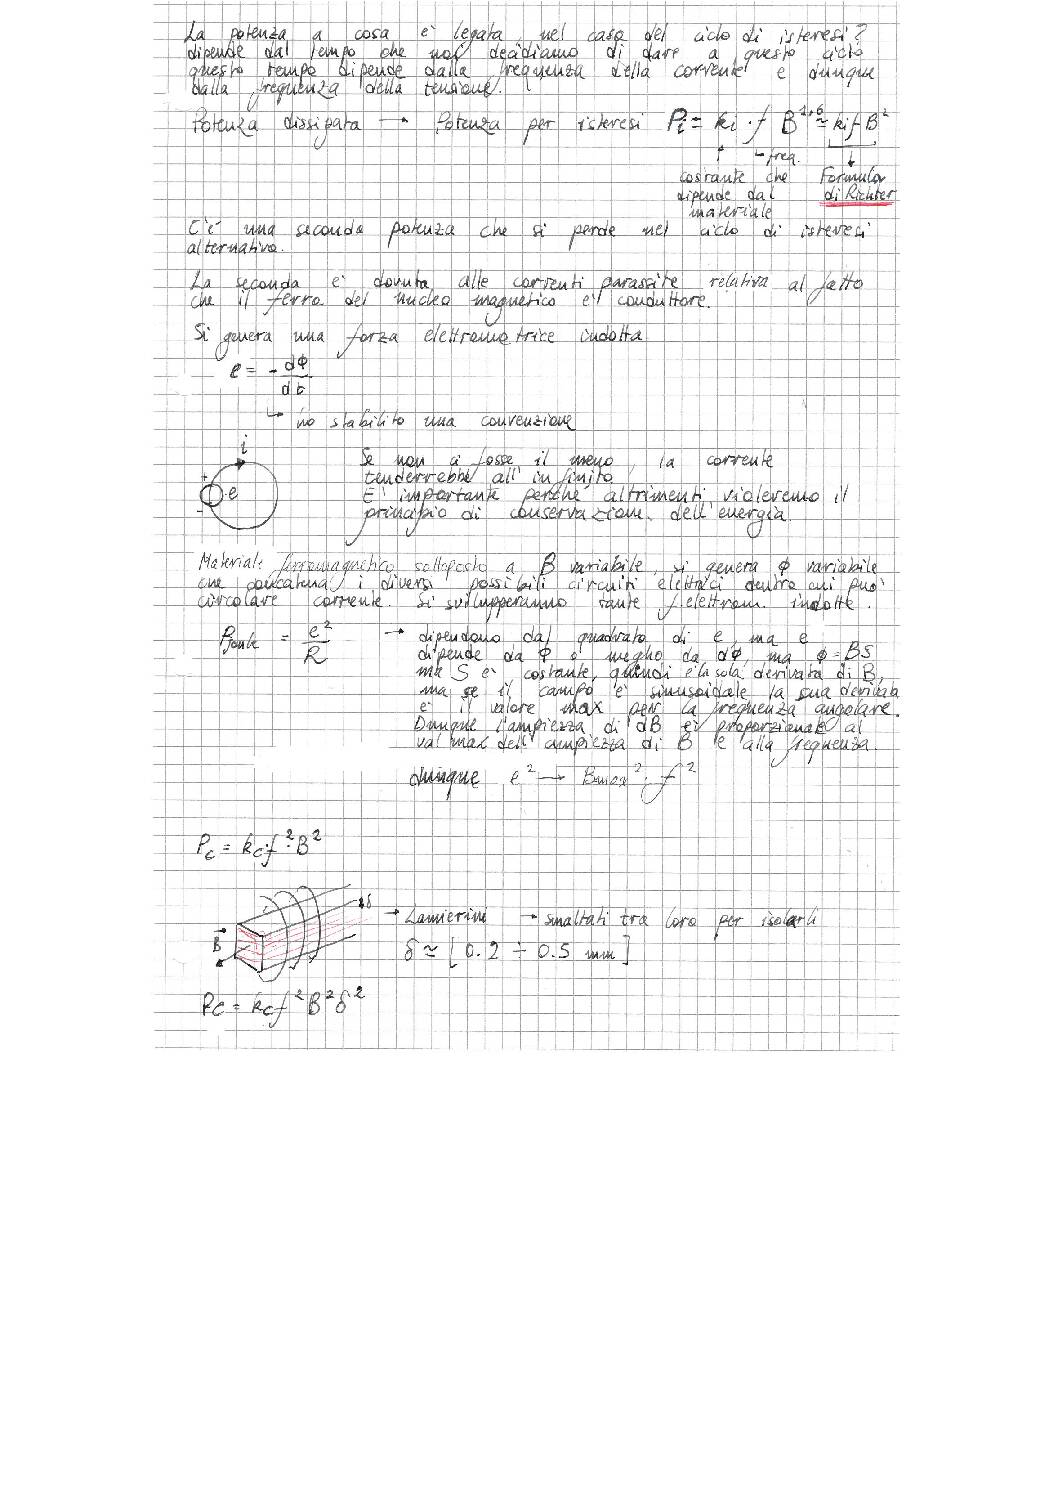 La potenza a cosa è legata, nel caso del ciclo di isteresi?
dipende dal tempo che noi decidiamo di dare a questo ciclo
questo tempo dipende dalla frequenza della corrente e dunque
dalla frequenza della tensione.
Potenza dissipata → Potenza per isteresi Pi = ki · f B^1,6 ≃ kif B²
↑ ↳ freq. ↓
costante che Formula
dipende dal di Richter
materiale
C'è una seconda potenza che si perde nel ciclo di isteresi
alternativa.
La seconda è dovuta alle correnti parassite relativa al fatto
che il ferro del nucleo magnetico è conduttore.
Si genera una forza elettromotrice indotta
e = - dΦ/dt
↳ ho stabilito una convenzione
i
+ e -
Se non ci fosse il meno, la corrente
tenderrebbe all'infinito
E' importante perché altrimenti violeremo il
principio di conservazione dell'energia
Materiale ferromagnetico sottoposto a B variabile, si genera ϕ variabile
che concatena i diversi possibili circuiti elettrici dentro cui può
circolare corrente. Si svilupperanno tante f elettrom. indotte.
Pjoule = e²/R → dipendono dal quadrato di e, ma e
dipende da Φ o meglio da dϕ, ma ϕ = BS
ma S è costante, quindi è la sola derivata di B,
ma se il campo è sinusoidale la sua derivata
è il valore max per la frequenza angolare.
Dunque l'ampiezza di dB è proporzionale al
val max dell'ampiezza di B e alla frequenza.
dunque e² → Bmax² · f²
Pc = kc f² · B²
i δ
B
→ Lamierini → smaltati tra loro per isolarli
δ ≃ [0.2 ÷ 0.5 mm]
Pc = kc f² B² δ²